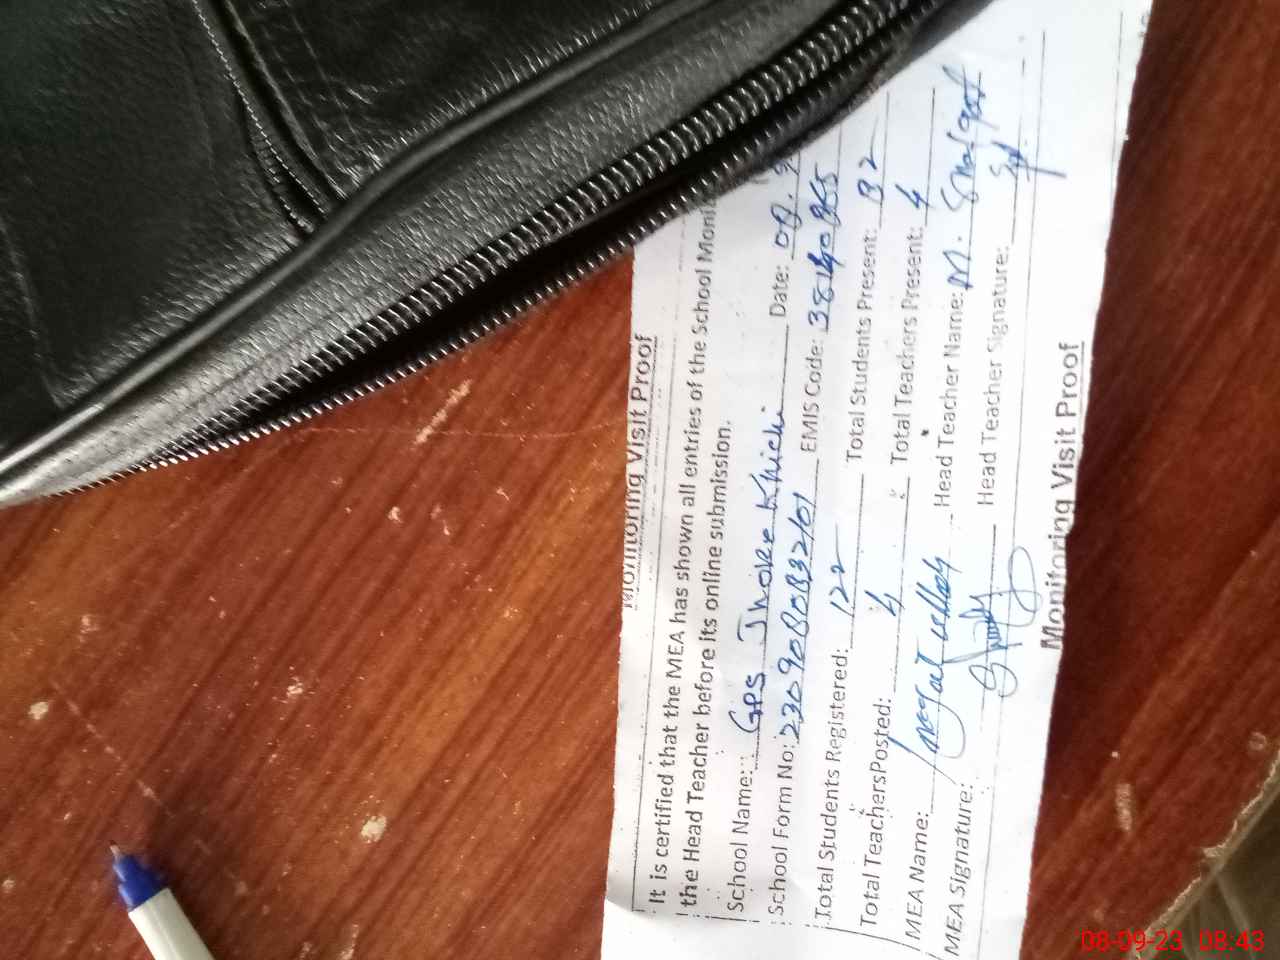 Monitoring Visit Proof
It is certified that the MEA has shown all entries of the School Monit
the Head Teacher before its online submission.
School Name: GPS Jhoke Khichi Date: 08.
School Form No: 2309080832101 EMIS Code:
Total Students Registered: 122 Total Students Present: 82
Total TeachersPosted: 4 Total Teachers Present: 4
MEA Name: Head Teacher Name: M.
MEA Signature: Head Teacher Signature:
Monitoring Visit Proof
08-09-23 08:43